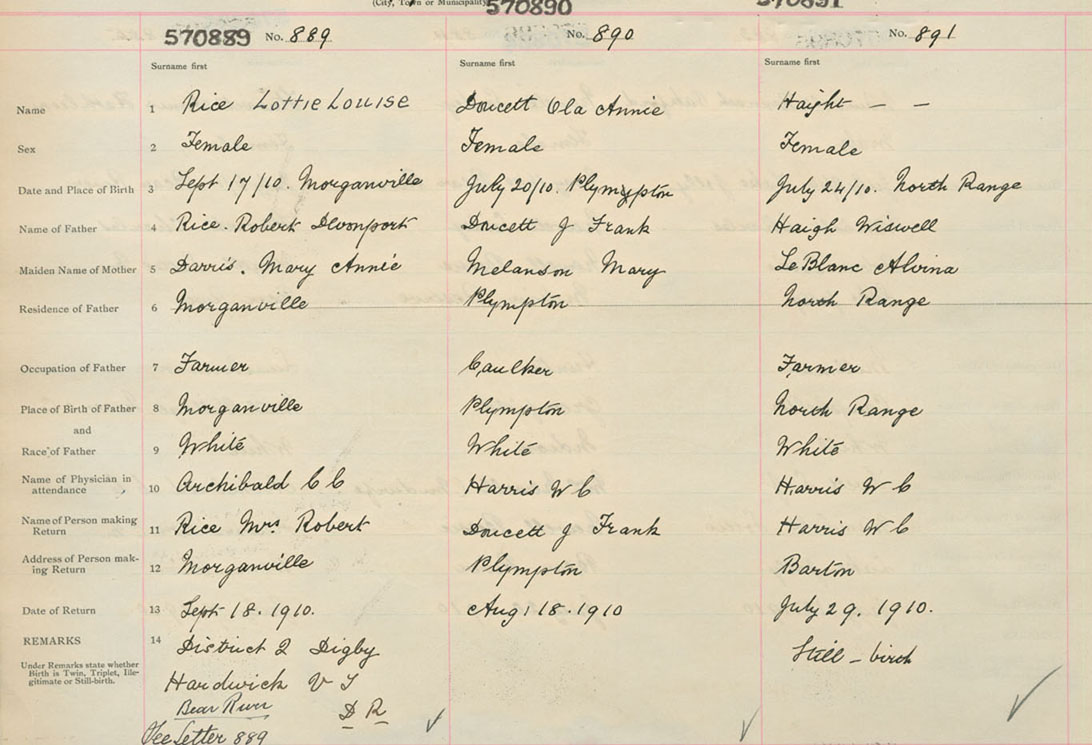 (City, Town or Municipality)
570890 570891
570889 No. 889 No. 890 No. 891
Surname first Surname first Surname first
Name 1 Rice Lottie Louise Doucett Ola Annie Haight — —
Sex 2 Female Female Female
Date and Place of Birth 3 Sept 17/10. Morganville July 20/10. Plympton July 24/10. North Range
Name of Father 4 Rice. Robert Devonport Doucett J Frank Haigh Wiswell
Maiden Name of Mother 5 Darris. Mary Annie Melanson Mary LeBlanc Alvina
Residence of Father 6 Morganville Plympton North Range
Occupation of Father 7 Farmer Caulker Farmer
Place of Birth of Father 8 Morganville Plympton North Range
and
Race of Father 9 White White White
Name of Physician in
attendance 10 Archibald C C Harris W C Harris W C
Name of Person making
Return 11 Rice Mrs Robert Doucett J Frank Harris W C
Address of Person mak-
ing Return 12 Morganville Plympton Barton
Date of Return 13 Sept 18. 1910. Aug 18. 1910 July 29. 1910.
REMARKS 14 District 2 Digby Still - birth
Under Remarks state whether
Birth is Twin, Triplet, Ille-
gitimate or Still-birth.
Hardwick V T
Bear River D R
See Letter 889